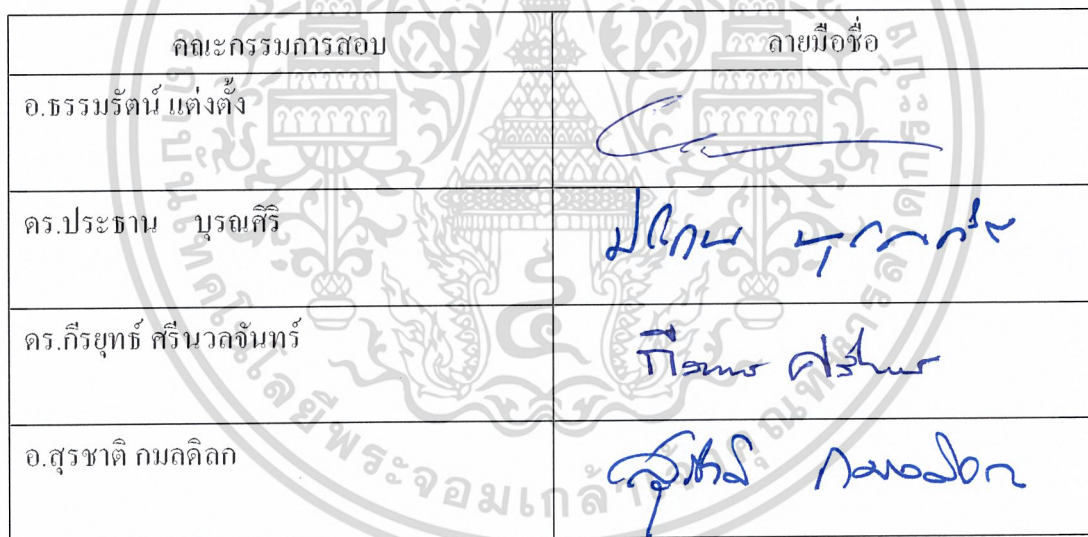 คณะกรรมการสอบ ลายมือชื่อ
อ.ธรรมรัตน์ แต่งตั้ง
ดร.ประธาน บุรณศิริ
ประธาน บุรณศิริ
ดร.กีรยุทธ์ ศรีนวลจันทร์
อ.สุรชาติ กมลดิลก
สุรชาติ กมลดิลก
พระจอมเกล้า